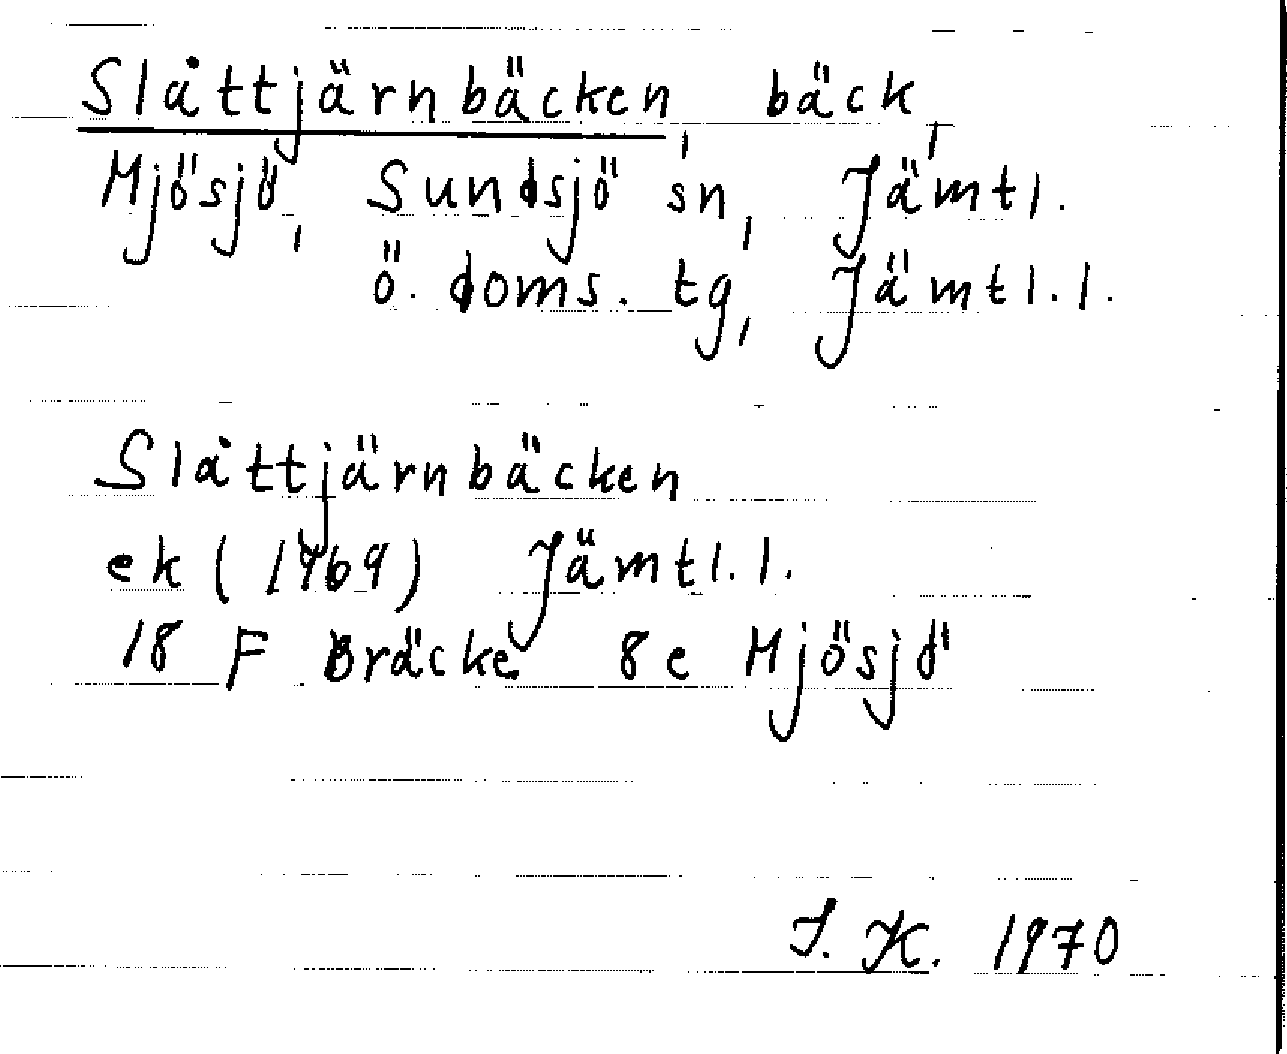 Slåttjärnbäcken, bäck,
Mjösjö, Sundsjö sn, Jämtl.
ö. doms. tg, Jämtl. l.
Slåttjärnbäcken
ek (1969) Jämtl. l.
18 F Bräcke 8e Mjösjö
I. K. 1970